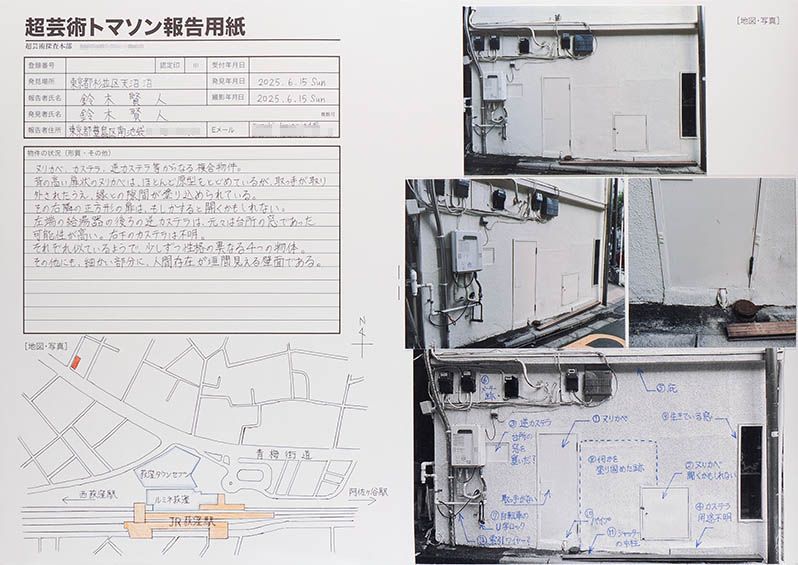 超芸術トマソン報告用紙
超芸術探査本部
登録番号 認定印 ㊞ 受付年月日
発見場所 東京都杉並区天沼 発見年月日 2025.6.15 Sun
報告者氏名 鈴木賢人 撮影年月日 2025.6.15 Sun
発見者氏名 鈴木賢人
報告者住所 東京都豊島区南池袋 Eメール
物件の状況(形質・その他)
ヌリカベ、カステラ、逆カステラ等からなる複合物件。
背の高い扉状のヌリカベは、ほとんど原型をとどめているが、取っ手が取り
外されたうえ、縁との隙間が塗り込められている。
その右隣の正方形の扉は、もしかすると開くかもしれない。
左端の給湯器の後ろの逆カステラは、元々は台所の窓であった
可能性が高い。右下のカステラは不明。
それぞれ似ているようで、少しずつ性格の異なる4つの物体。
その他にも、細かい部分に、人間存在が垣間見える壁面である。
[地図・写真]
N
4
青梅街道
荻窪タウンセブン
西荻窪駅
ルミネ荻窪
阿佐ヶ谷駅
JR荻窪駅
[地図・写真]
⑤庇
メーター跡
③逆カステラ
台所の窓を塞いだ?
①ヌリカベ
⑨生きている窓
⑧何かを塗り固めた跡
②ヌリカベ
開くかもしれない
取っ手がない
④カステラ
用途不明
⑦自転車のU字ロック
⑩パイプ
索引ワイヤー?
⑪シャッターの中柱